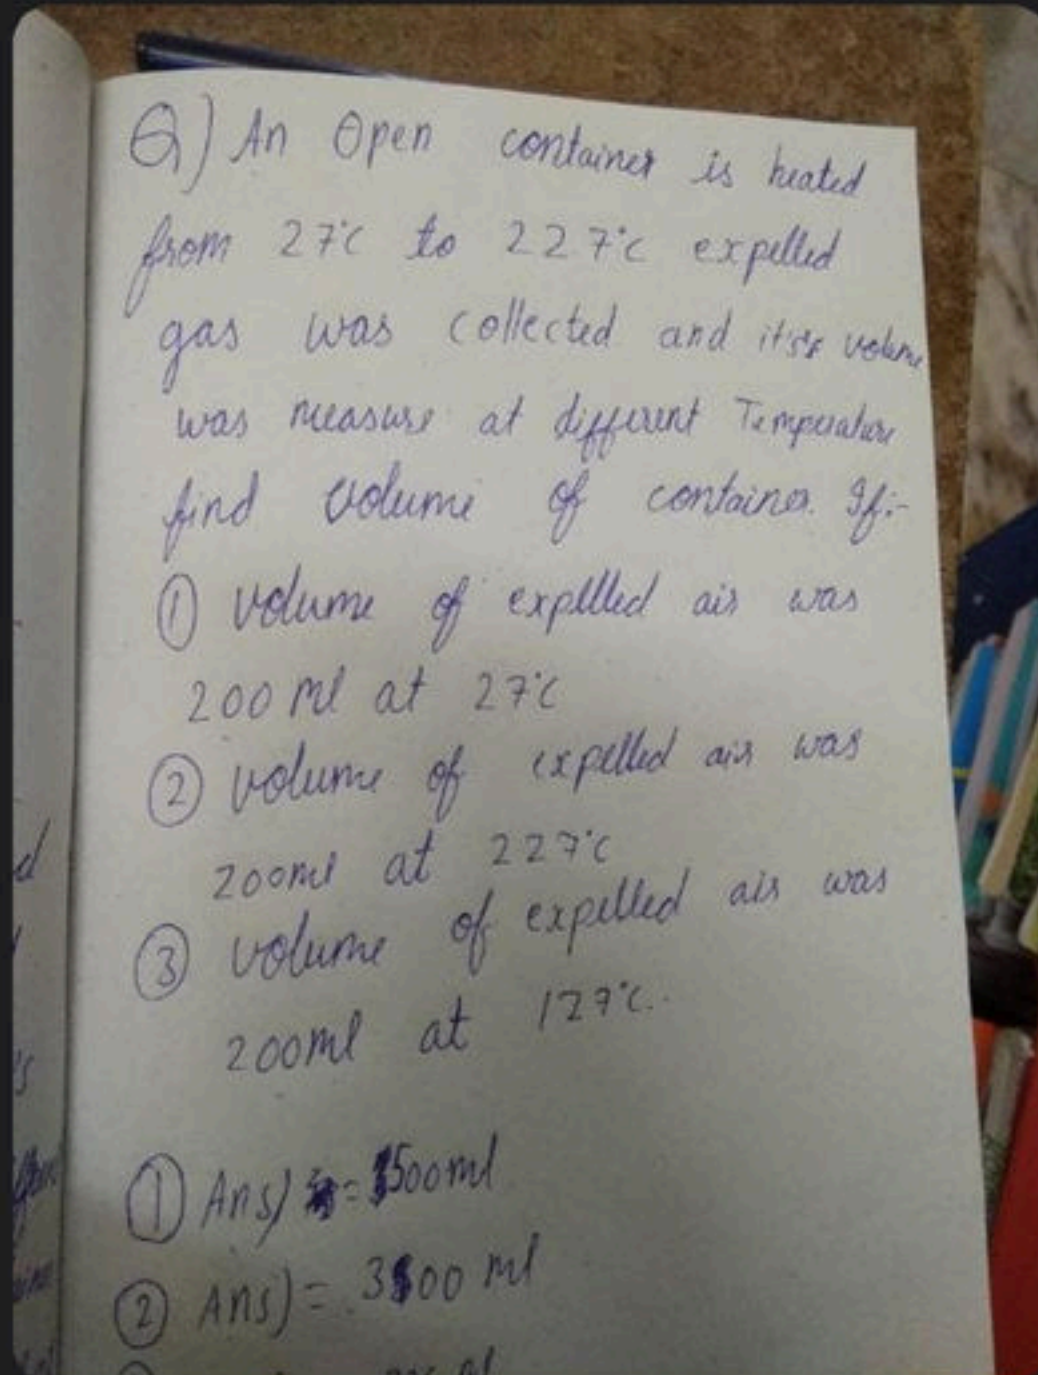 Q) An Open container is heated
from 27°C to 227°C expelled
gas was collected and its volume
was measure at different Temperature
find volume of container. If:-
① volume of explled air was
200 ml at 27°C
② volume of expelled air was
200ml at 227°C
③ volume of expelled air was
200ml at 127°C.
① Ans) = 500ml
② Ans) = 300 ml